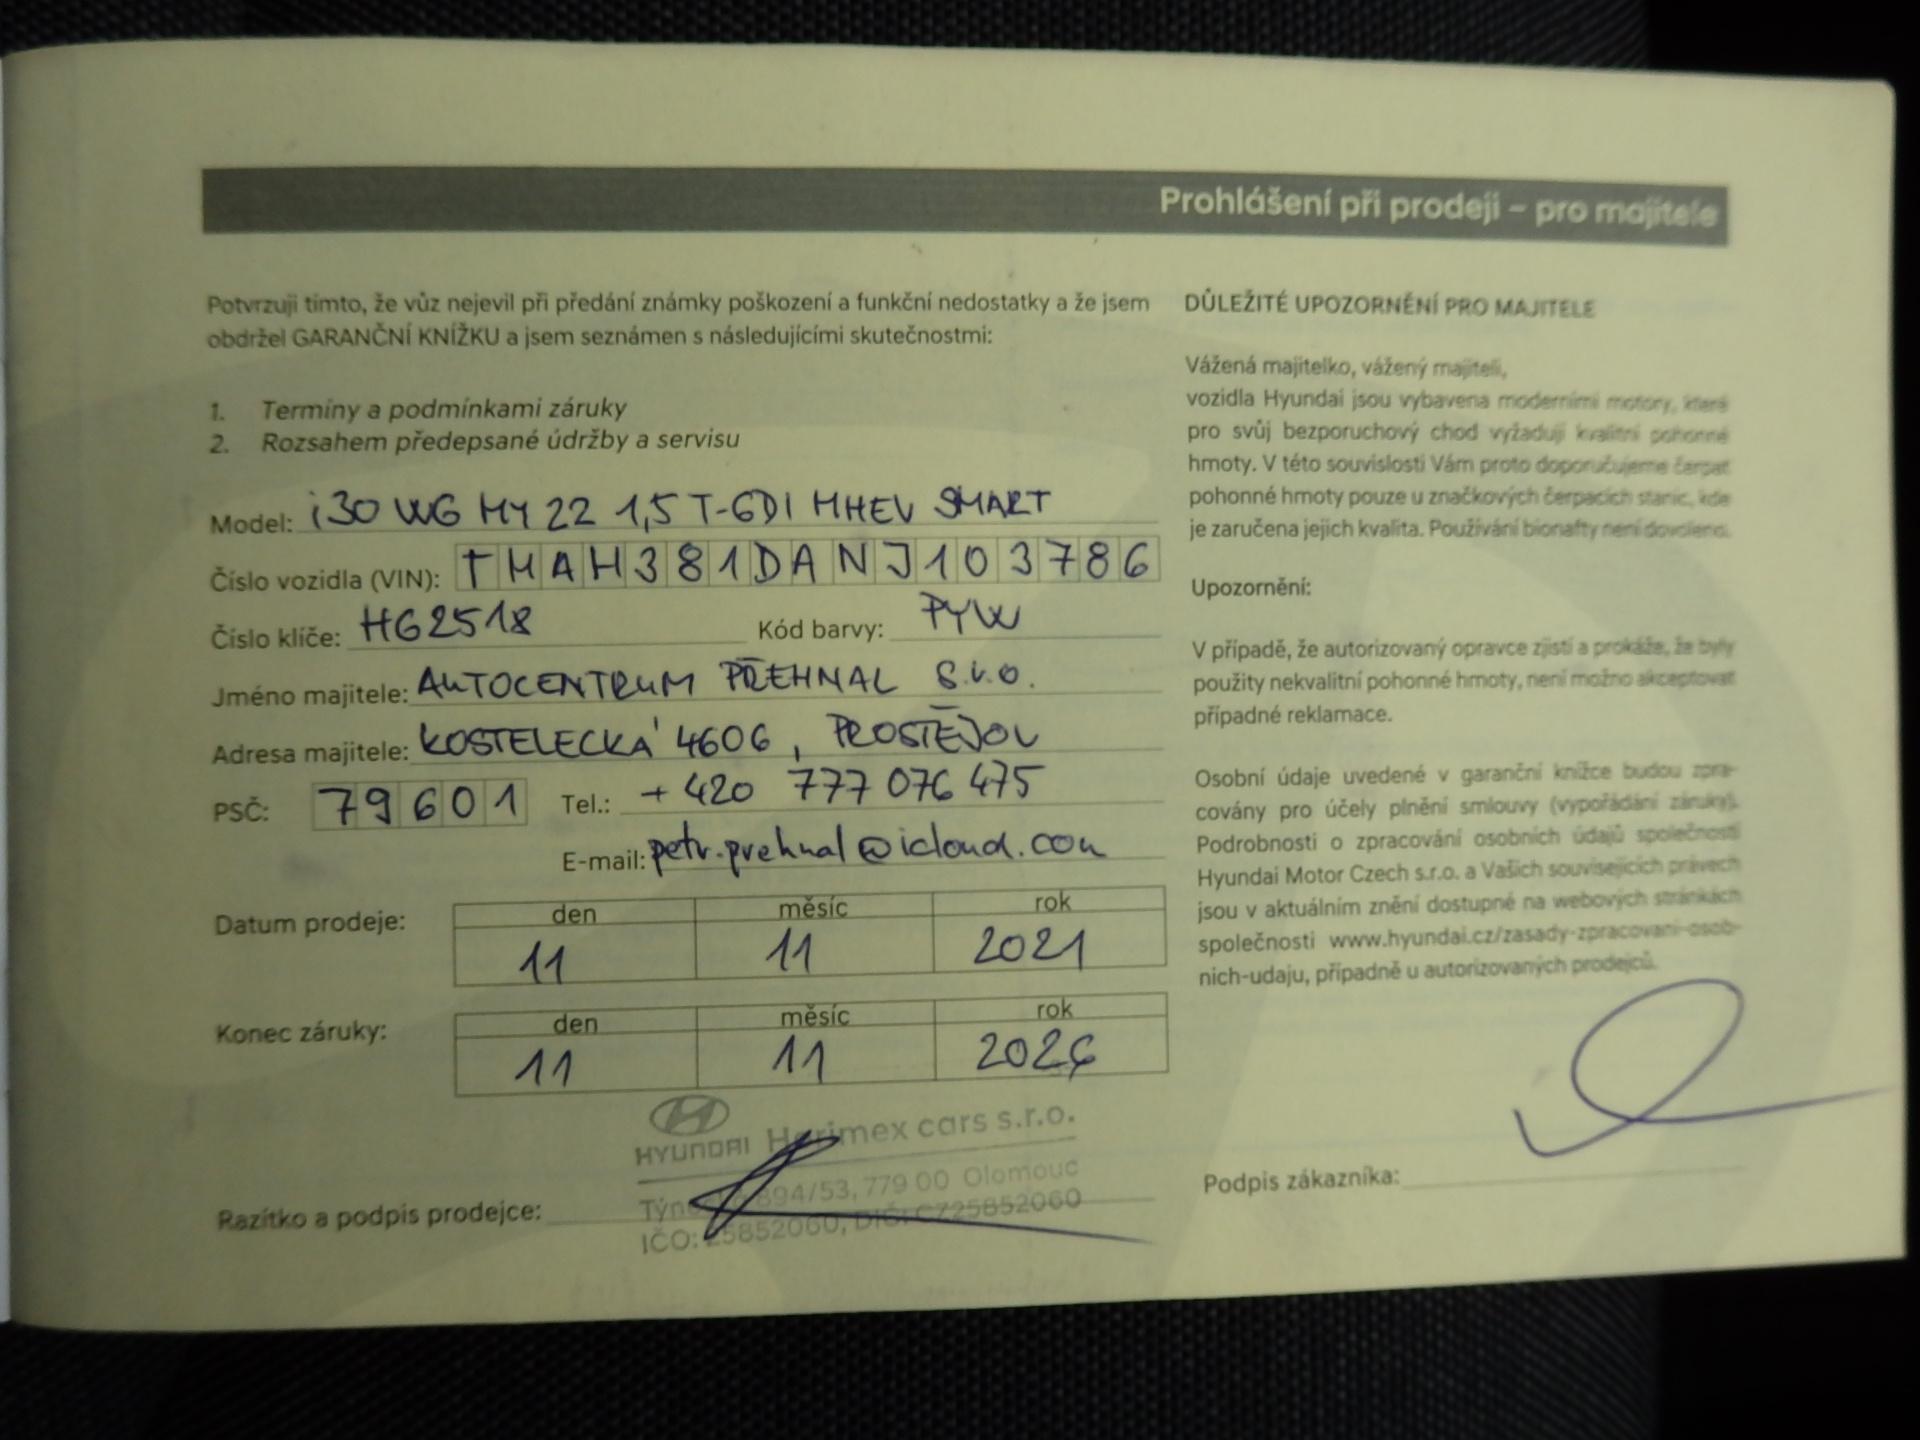 Prohlášení při prodeji – pro majitele
Potvrzuji tímto, že vůz nejevil při předání známky poškození a funkční nedostatky a že jsem
obdržel GARANČNÍ KNÍŽKU a jsem seznámen s následujícími skutečnostmi:
1. Termíny a podmínkami záruky
2. Rozsahem předepsané údržby a servisu
Model: i30 WG MY 22 1,5 T-GDI MHEV SMART
Číslo vozidla (VIN): TMAH381DANJ103786
Číslo klíče: HG2518 Kód barvy: PYW
Jméno majitele: AUTOCENTRUM PŘEHNAL s.r.o.
Adresa majitele: KOSTELECKÁ 4606, PROSTĚJOV
PSČ: 79601 Tel.: +420 777 076 475
E-mail: petr.prehnal@icloud.com
Datum prodeje: den měsíc rok
11 11 2021
Konec záruky: den měsíc rok
11 11 2026
HYUNDAI Herimex cars s.r.o.
894/53, 779 00 Olomouc
Razítko a podpis prodejce:
IČO: 25852060, DIČ: CZ25852060
DŮLEŽITÉ UPOZORNĚNÍ PRO MAJITELE
Vážená majitelko, vážený majiteli,
vozidla Hyundai jsou vybavena moderními motory, které
pro svůj bezporuchový chod vyžadují kvalitní pohonné
hmoty. V této souvislosti Vám proto doporučujeme čerpat
pohonné hmoty pouze u značkových čerpacích stanic, kde
je zaručena jejich kvalita. Používání bionafty není dovoleno.
Upozornění:
V případě, že autorizovaný opravce zjistí a prokáže, že byly
použity nekvalitní pohonné hmoty, není možno akceptovat
případné reklamace.
Osobní údaje uvedené v garanční knížce budou zpra-
covány pro účely plnění smlouvy (vypořádání záruky).
Podrobnosti o zpracování osobních údajů společností
Hyundai Motor Czech s.r.o. a Vašich souvisejících právech
jsou v aktuálním znění dostupné na webových stránkách
společnosti www.hyundai.cz/zasady-zpracovani-osob-
nich-udaju, případně u autorizovaných prodejců.
Podpis zákazníka: